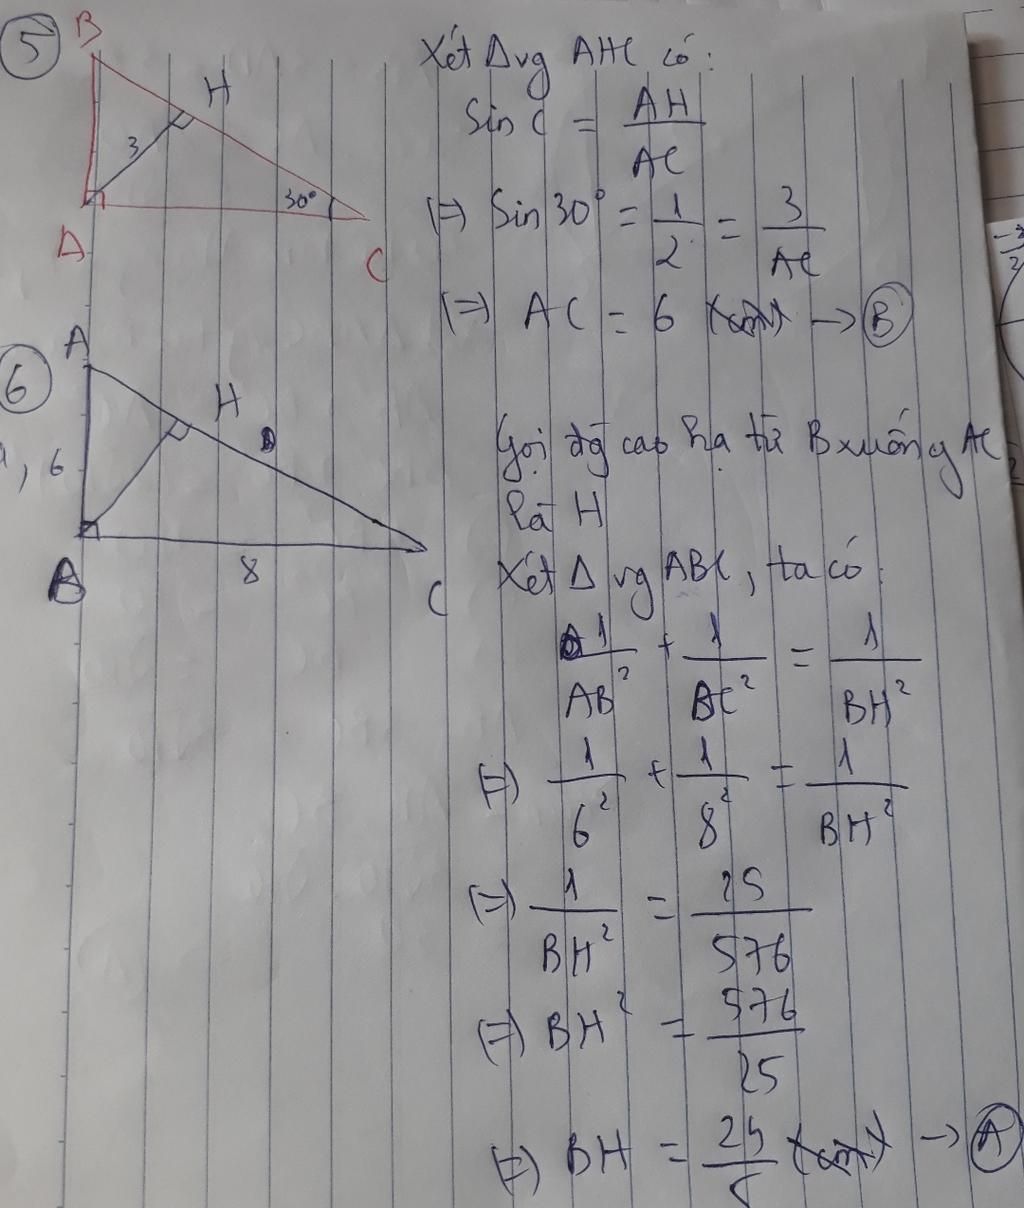 5
B
H
3
30°
A
C
Xét Δvg AHC có:
Sin C = AH/AC
(=) Sin 30° = 1/2 = 3/AC
(=) AC = 6 (cm) → B
6
A
H
, 6
B
8
C
Gọi đg cao hạ từ B xuống AC
là H
Xét Δ vg ABC, ta có:
1/AB² + 1/BC² = 1/BH²
(=) 1/6² + 1/8² = 1/BH²
(=) 1/BH² = 25/576
(=) BH² = 576/25
(=) BH = 24/5 (cm) → A